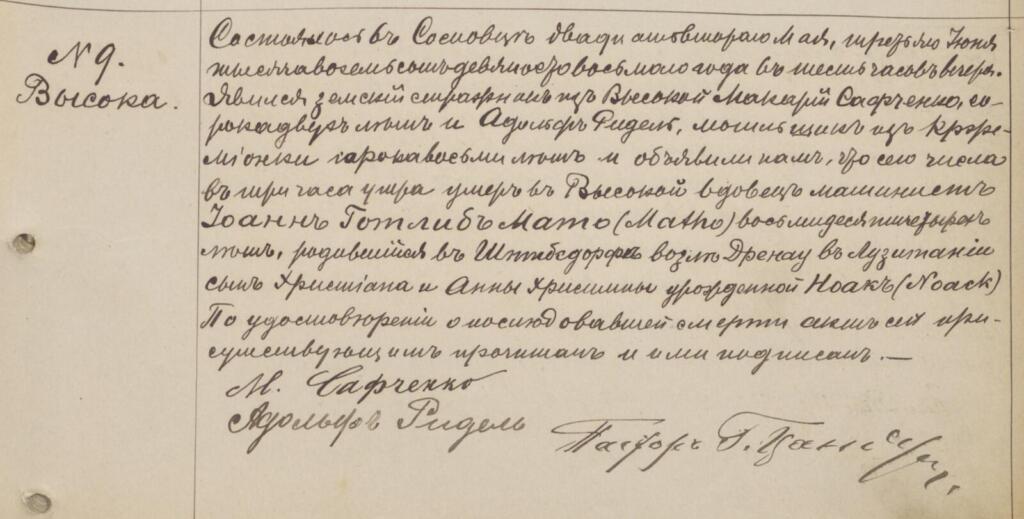 N 9.
Высока.
Состоялось въ Сосновцѣ двадцать втораго Мая, третьяго Іюня
тысяча восемьсотъ девяносто восьмаго года въ шесть часовъ вечера.
Явился земскій стражникъ изъ Высокой Макарій Сафченко, со-
рока двухъ лѣтъ и Адольфъ Ридель, могильщикъ изъ
сорока восьми лѣтъ и объявили намъ, что сего числа
въ три часа утра умеръ въ Высокой вдовецъ машинистъ
Іоаннъ Готлибъ Мато (Matho) восьмидесяти четырехъ
лѣтъ, родившійся въ возлѣ въ Лузитаніи
сынъ Христіана и Анны Христины урожденной Ноакъ (Noack)
По удостовѣреніи о послѣдовавшей смерти актъ сей при-
сутствующимъ прочитанъ и ими подписанъ. —
М. Сафченко
Адольфъ Ридель
Пасторъ Г.